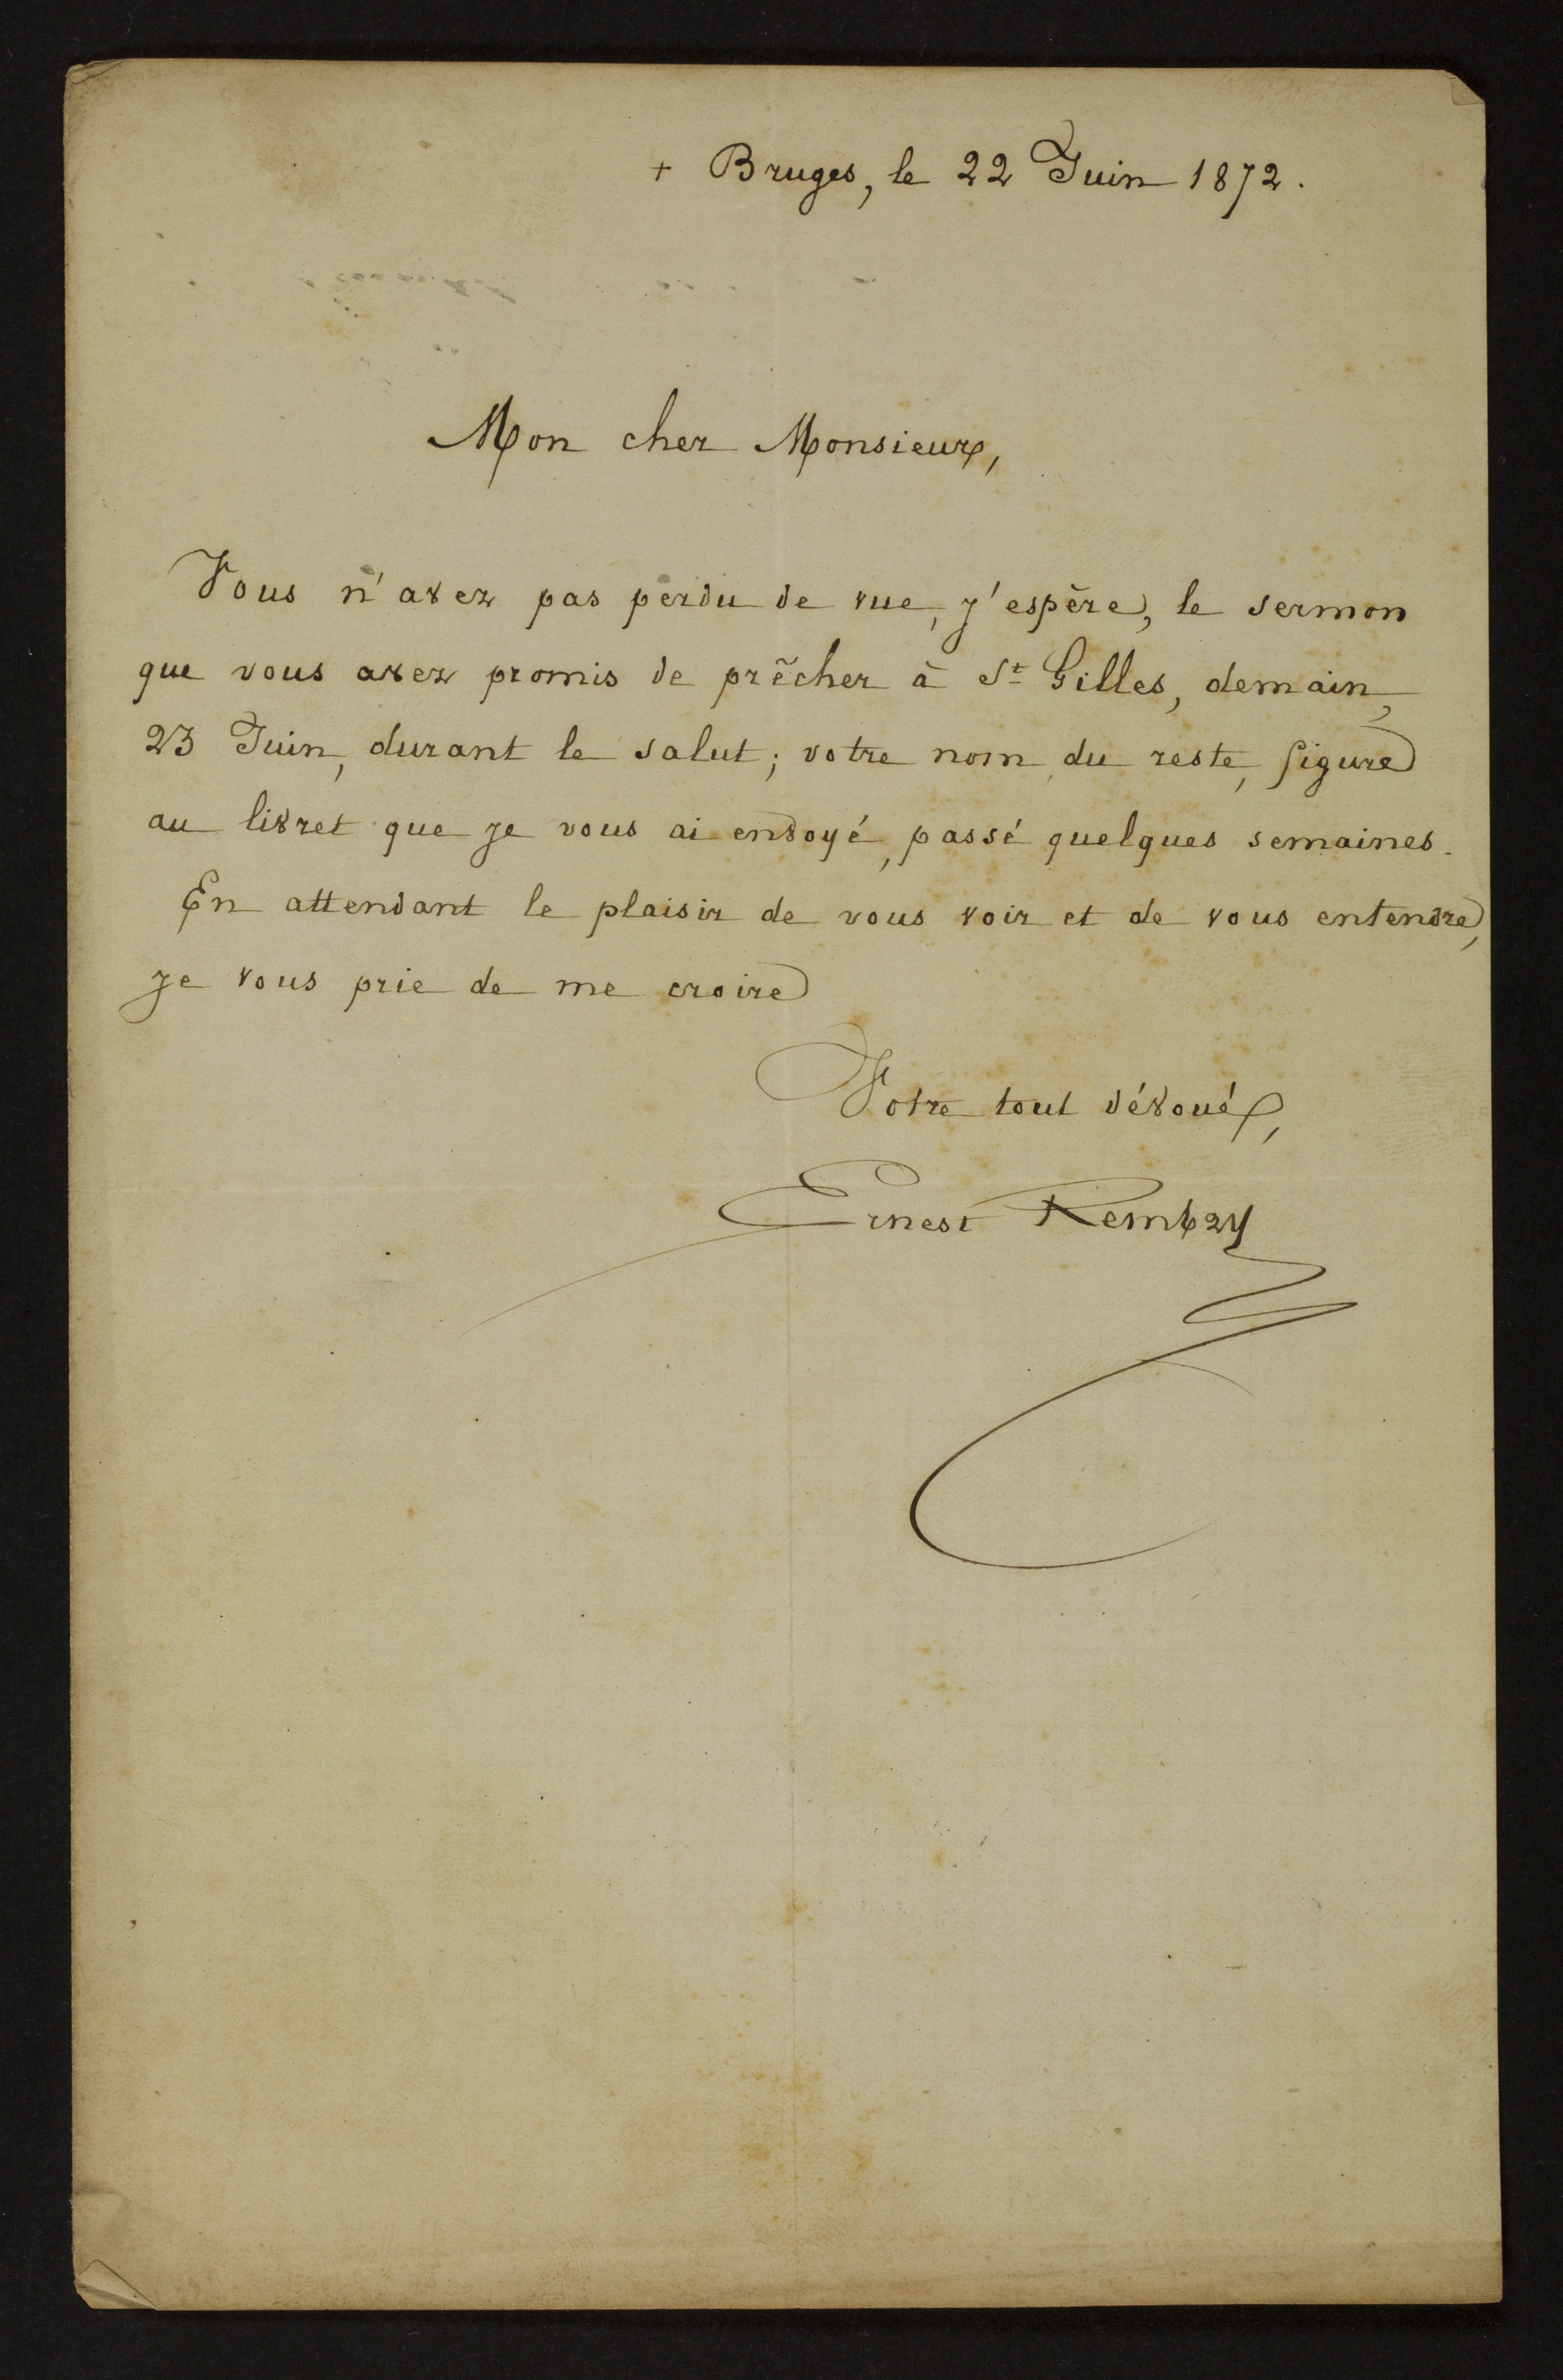 + Bruges, le 22 Juin 1872.
Mon cher Monsieur,
Vous n'avez pas perdu de vue, j'espère, le sermon
que vous avez promis de prêcher à St Gilles, demain,
23 Juin, durant le salut; votre nom, du reste, figure
au livret que je vous ai envoyé, passé quelques semaines.
En attendant le plaisir de vous voir et de vous entendre,
je vous prie de me croire
Votre tout dévoué,
Ernest Rembry